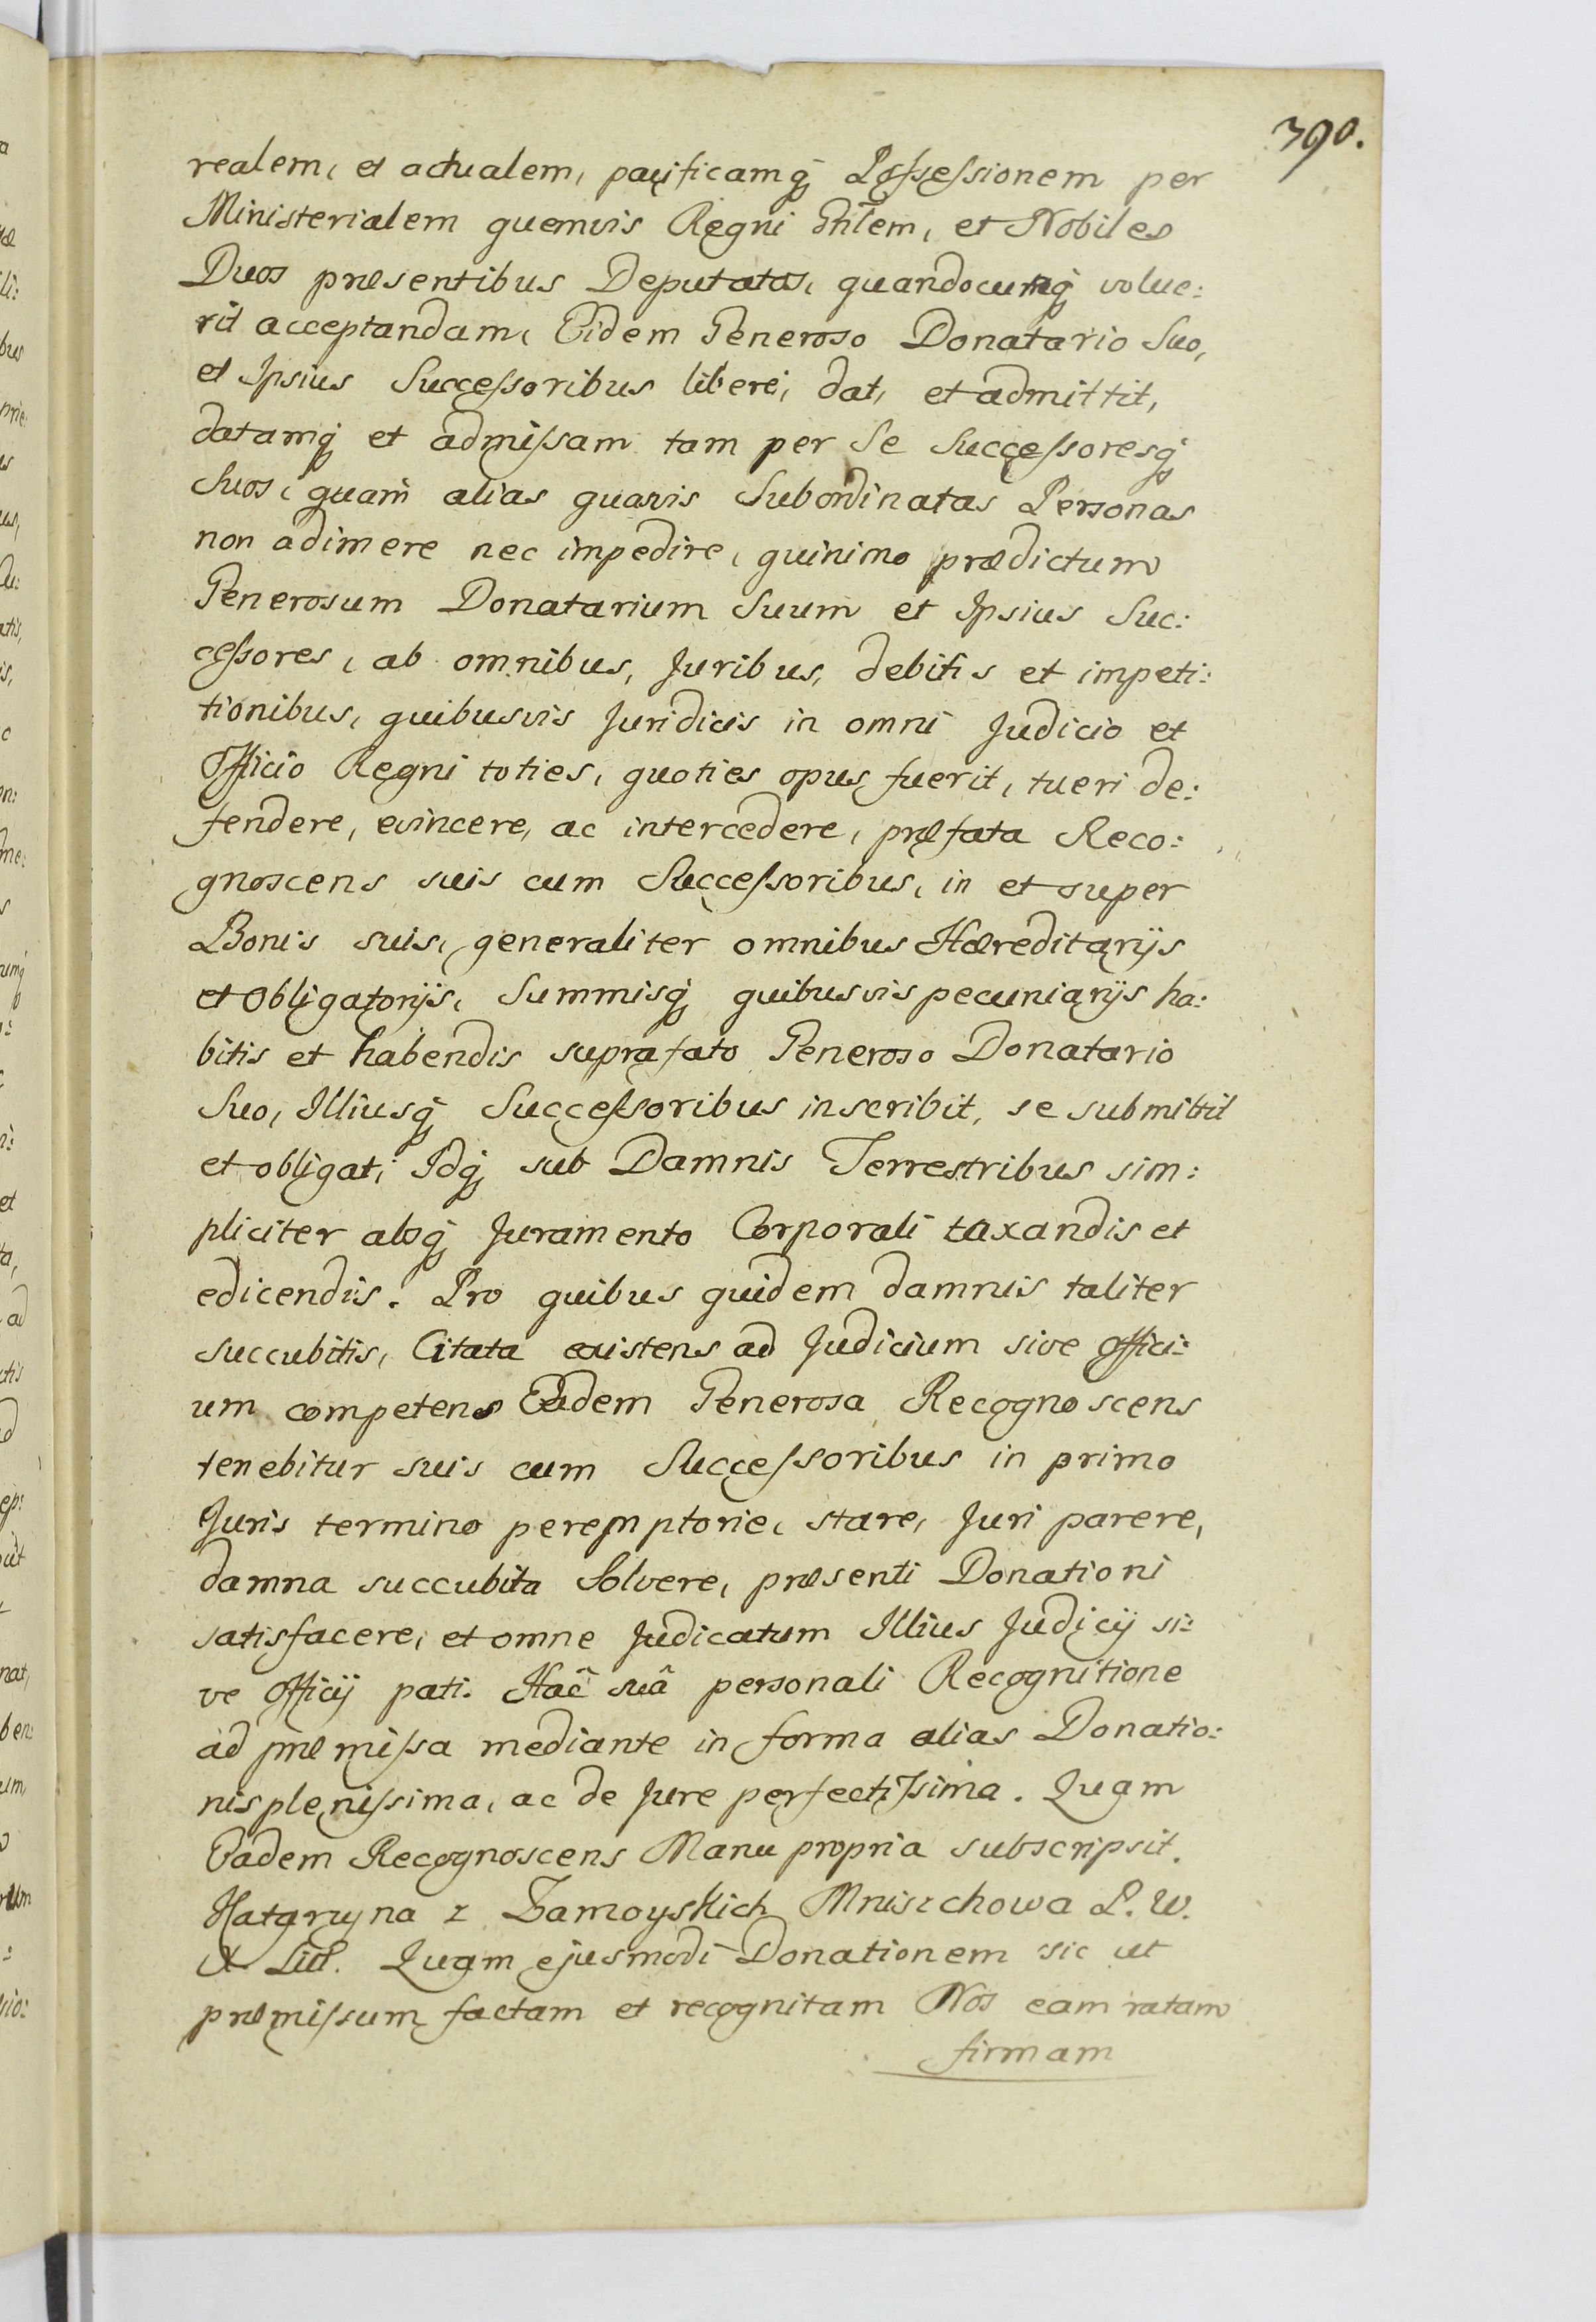 390.
realem, et actualem, pacificamq́ Possessionem per
Ministerialem quemvis Regni Gnlem, et Nobiles
Duos præsentibus Deputatas, quandocunq́ volue:
rit acceptandam, Eidem Generoso Donatario Suo,
et Ipsius Successoribus liberè, dat, et admittit,
datamq́ et admissam tam per Se Successoresq́
Suos, quam alias quasvis Subordinatas Personas
non adimere nec impedire, quinimo prædictum
Generosum Donatarium Suum et Ipsius Suc:
cessores, ab omnibus, Juribus, debitis et impeti:
tionibus, quibusvis Juridicis in omni Judicio et
Officio Regni toties, quoties opus fuerit, tueri de:
fendere, evincere, ac intercedere, præfata Reco:
gnoscens suis cum Successoribus, in et super
Bonis suis, generaliter omnibus Hæreditarijs
et Obligatorijs, Summisq́ quibusvis pecuniarijs ha:
bitis et habendis suprafato Generoso Donatario
Suo, Illiusq́ Successoribus inscribit, se submittit
et obligat; Idq́ sub Damnis Terrestribus sim:
pliciter absq́ Juramento Corporali taxandis et
edicendis. Pro quibus quidem damnis taliter
succubitis, Citata existens ad Judicium sive Offici:
um competens Eadem Generosa Recognoscens
tenebitur suis cum Successoribus in primo
Juris termino peremptorie, stare, Juri parere,
damna succubita Solvere, præsenti Donationi
satisfacere, et omne Judicatum Illius Judicij si:
ve Officij pati. Hac̑ suâ personali Recognitione
ad præmissa mediante in forma alias Donatio:
nis plenissima, ac de Jure perfectissima. Quam
Eadem Recognoscens Manu propria subscripsit.
Katarzyna z Zamoyskich Mniszchowa P. W.
X Litt. Quam ejusmodi Donationem sic ut
præmissum factam et recognitam Nos eam ratam
firmam